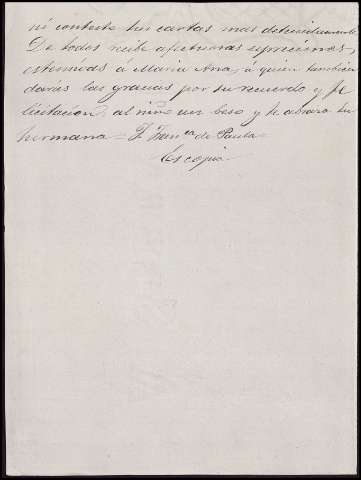 ni conteste tus cartas mas detenidamente.
De todos recibe afectuosas espresiones,
estensivas á Maria Ana, á quien tambien
darás las gracias por su recuerdo y fe
licitacion, al niño un beso y te abraza tu
hermana = F. Fran.ca de Paula =
Es copia